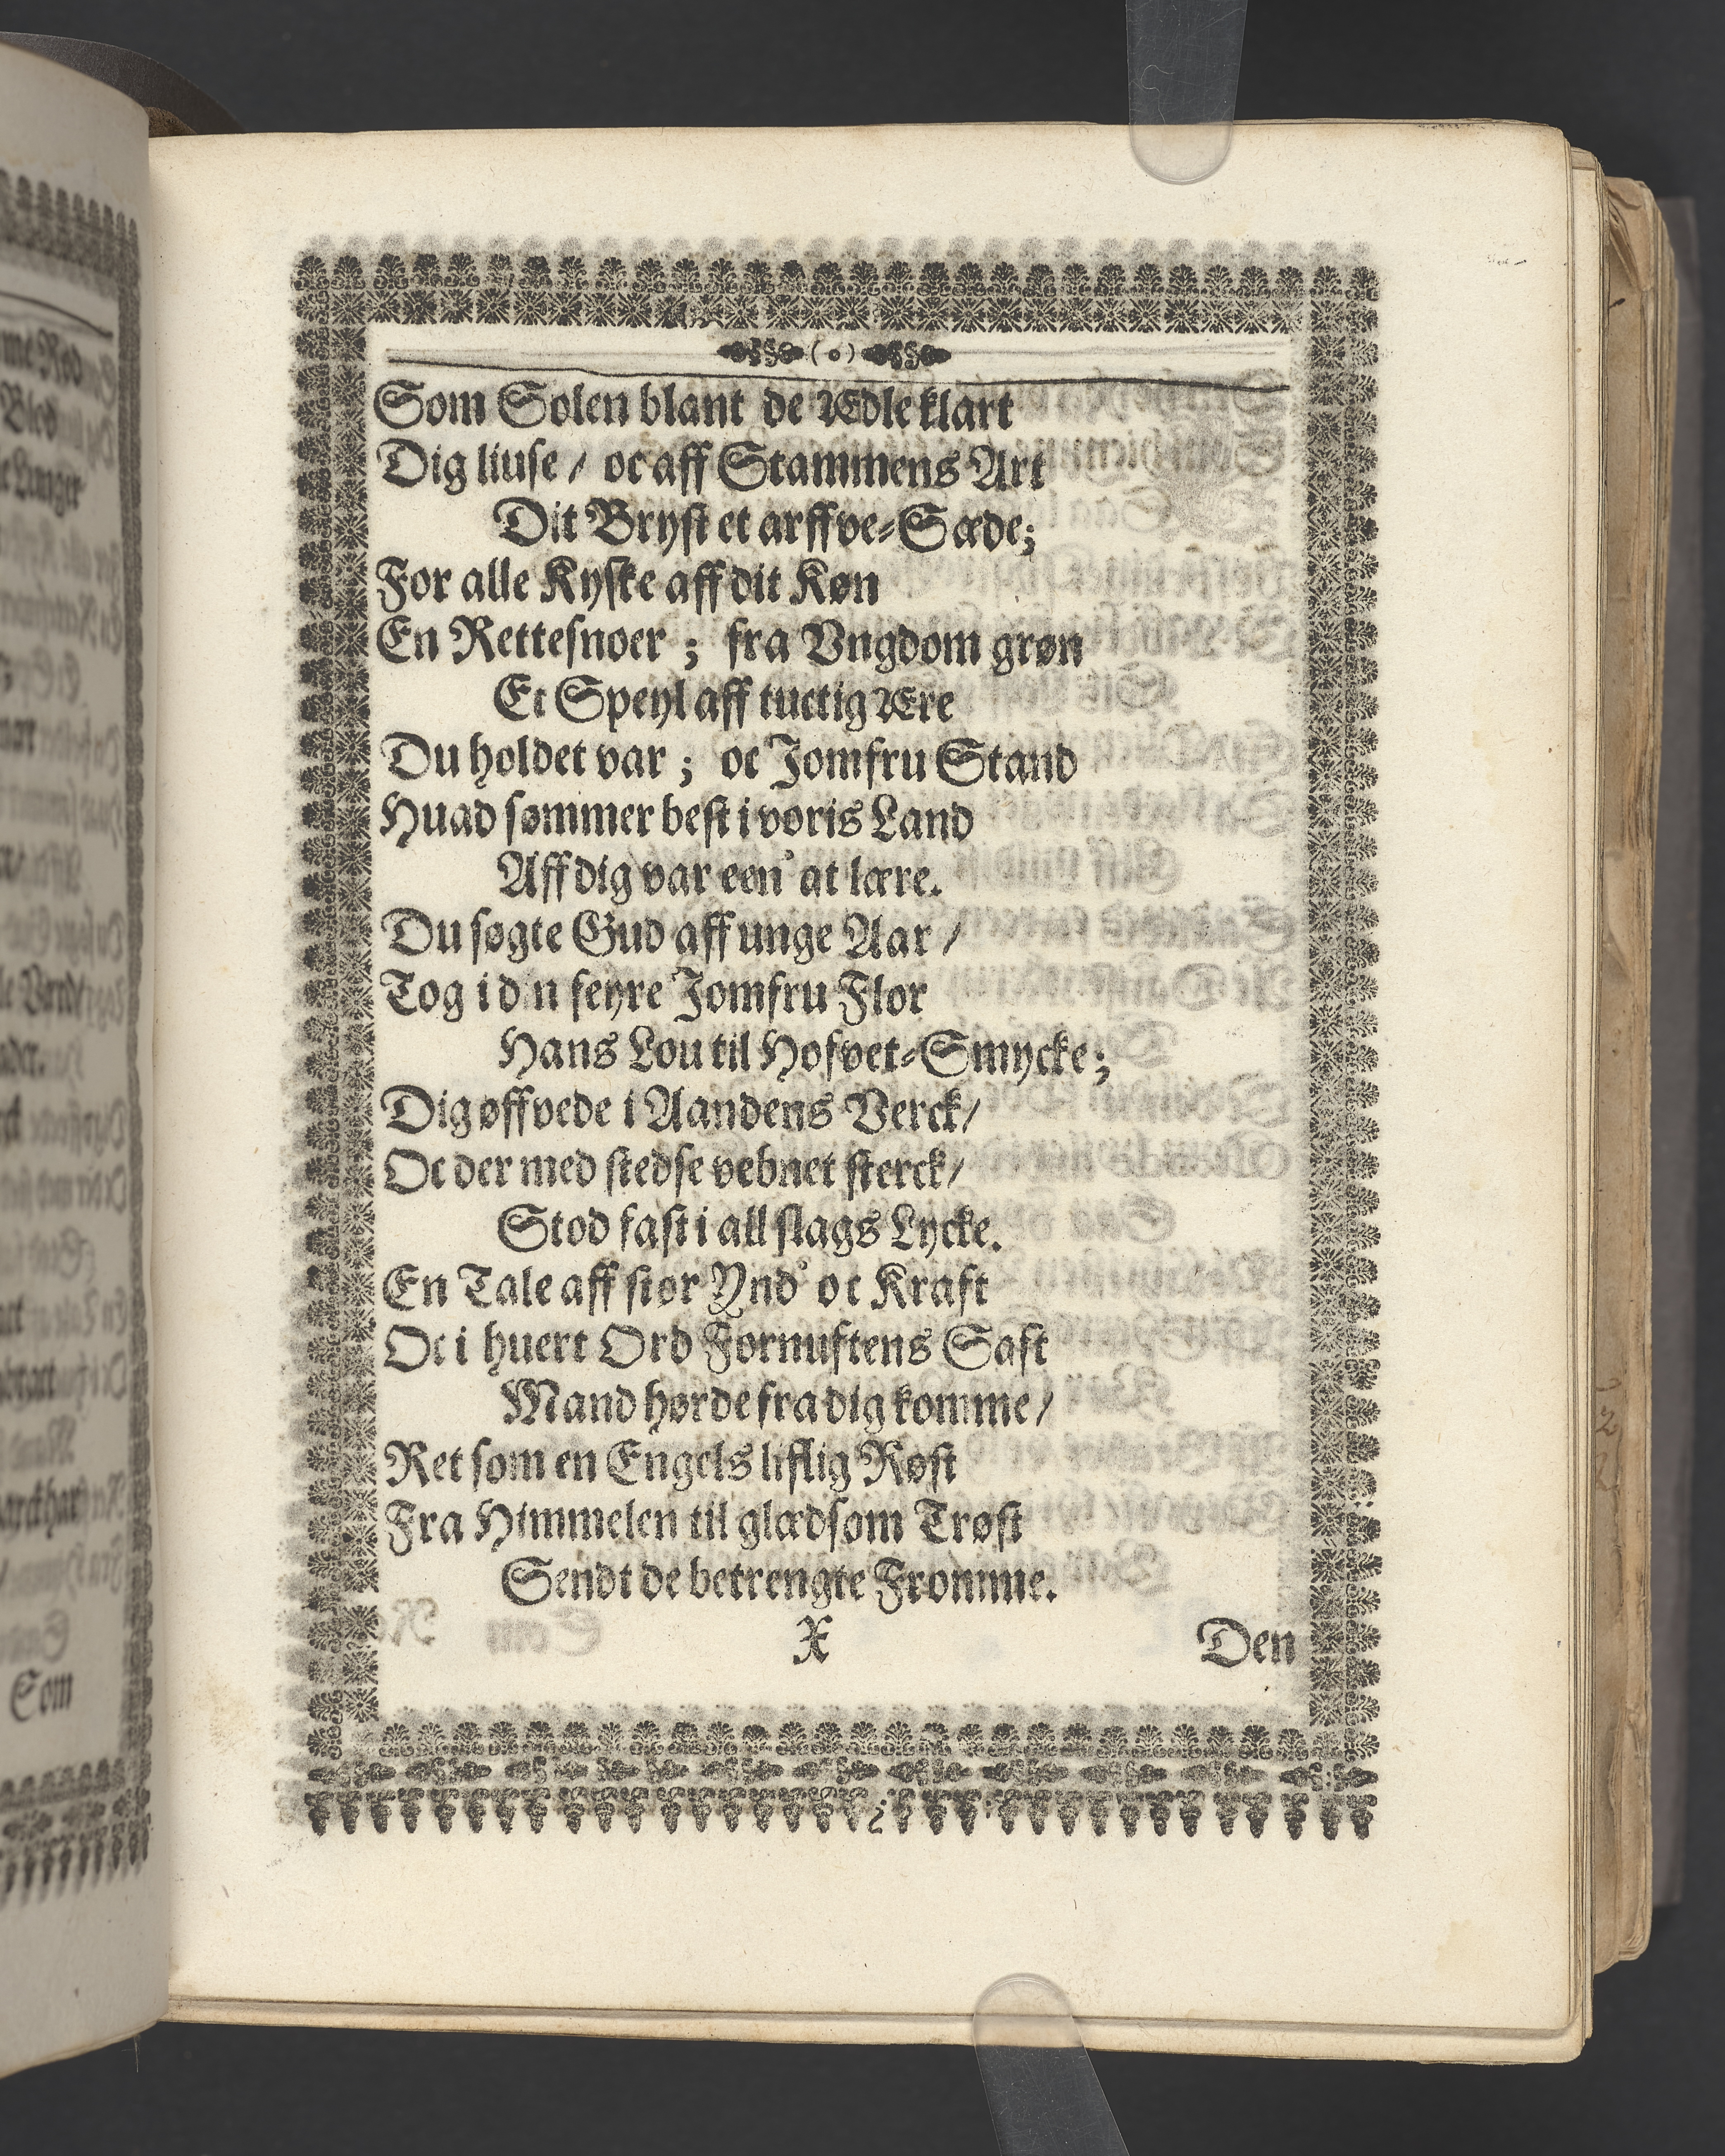 (o)
Som Solen blant de Ædle klart
Dig liuse / oc aff Stammens Art
Dit Bryst et arffve-Sæde;
For alle Kyske aff dit Køn
En Rettesnoer ; fra Vngdom grøn
Et Speyl aff tuctig Ære
Du holdet var ; oc Jomfru Stand
Huad sømmer best i voris Land
Aff dig var een' at lære.
Du søgte Gud aff unge Aar /
Tog i d n feyre Jomfru Flor
Hans Lou til Hofvet-Smycke;
Dig øffvede i Aandens Verck/
Oc der med stedse vebnet sterck/
Stod fast i all slags Lycke.
En Tale aff stor Ynd' oc Kraft
Oc i huert Ord Fornuftens Saft
Mand hørde fra dig komme/
Ret som en Engels liflig Røst
Fra Himmelen til glædsom Trøst
Sendt de betrengte Fromme.
X Den
Som